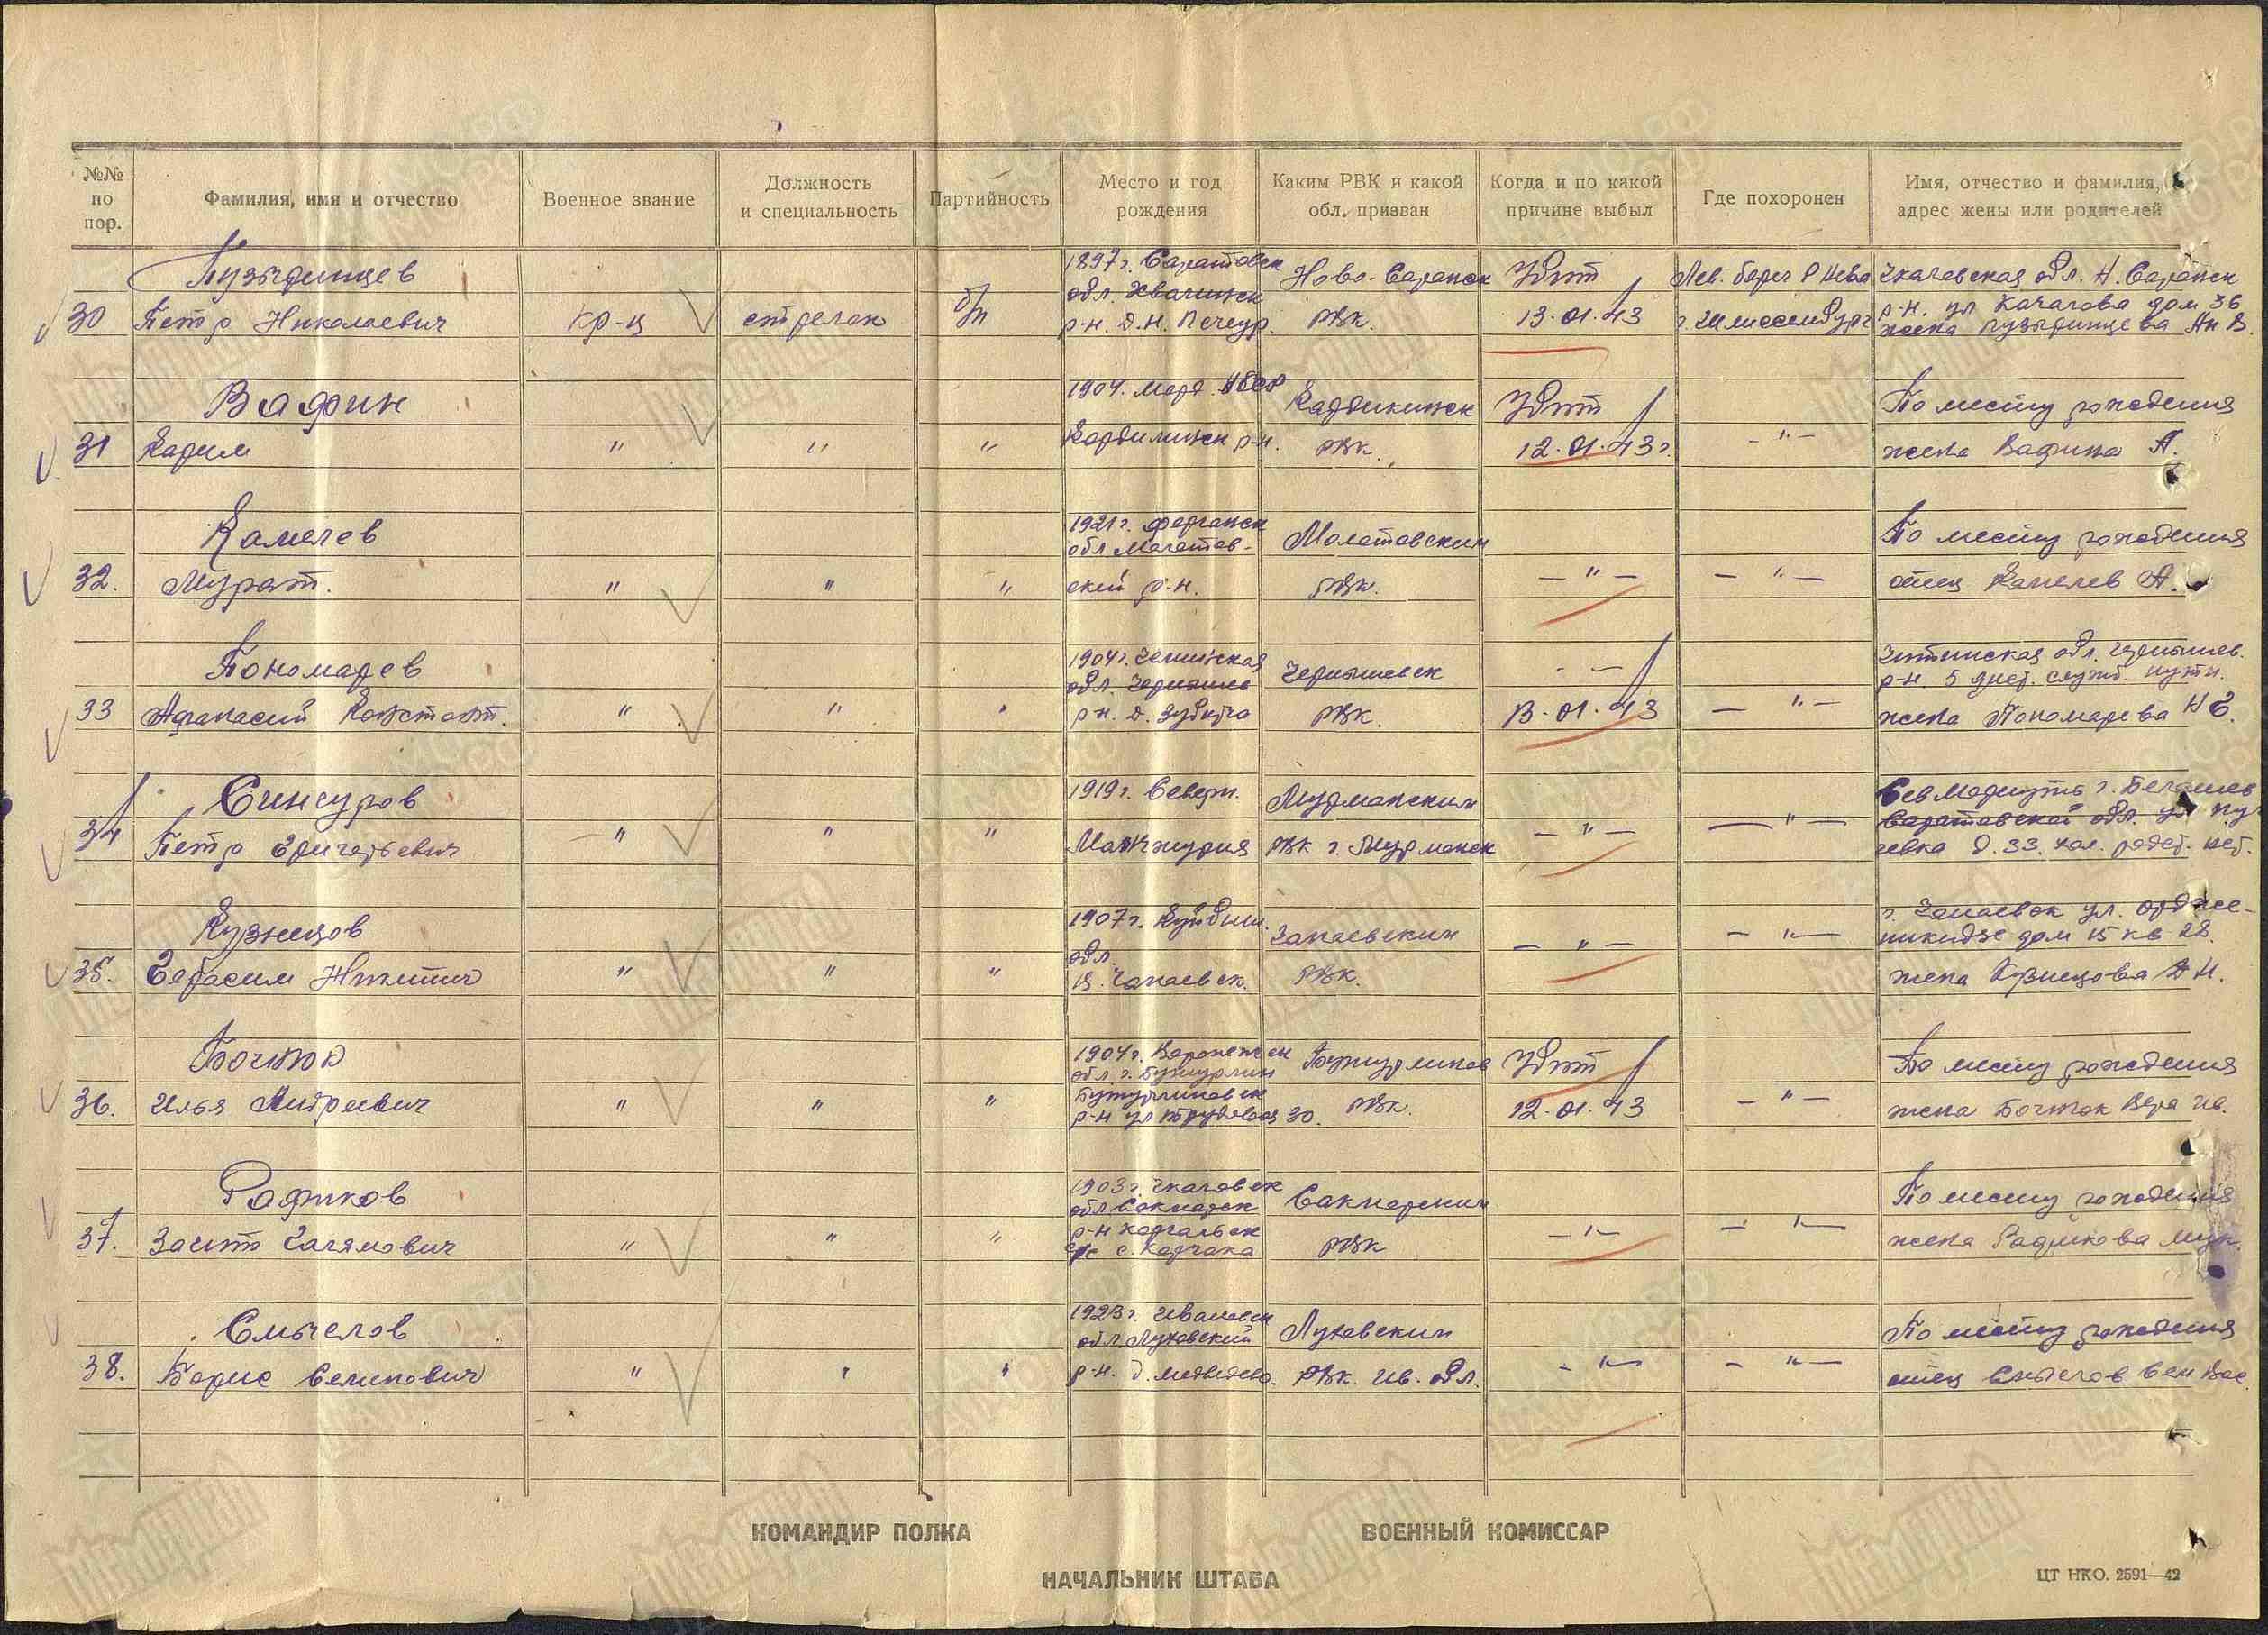 №№ по пор.
Фамилия, имя и отчество
Военное звание
Должность и специальность
Партийность
Место и год рождения
Каким РВК и какой обл. призван
Когда и по какой причине выбыл
Где похоронен
Имя, отчество и фамилия, адрес жены или родителей
30
Пузырницев
Петр Николаевич
кр-ц
стрелок
б/п
1897 г. Саратовск
обл. Хвалинск
р-н. Д.Н. Печеур.
Ново-Сарапск
РВК.
Убит
13.01.43
Лев. берег р Нева
г. Шлиссельбург
Чкаловская обл. Н. Сарапск
р-н. ул Качалова дом 36
жена Пузырницева Ан В.
31
Вафин
Карим
"
"
"
1904. Морд. АССР
Кардилинск р-н.
Кадыкинск
РВК.
Убит
12.01.43 г.
-"-
По месту рождения
жена Вафина А.
32.
Камелев
Мурат.
"
"
"
1921 г. Ферганск
обл Молотов-
ский р-н.
Молотовский
РВК.
-"-
-"-
По месту рождения
отец Камелев А.
33
Пономарев
Афанасий Констант.
"
"
"
1904 г. Читинская
обл. Чернышев
р-н. д. Зубитга
Чернышевск
РВК.
- " -
13.01.43
-"-
Читинская обл. Чернышев.
р-н. 5 дист. служб. пути.
жена Пономарева Н Е.
34
Синчуров
Петр Григорьевич
"
"
"
1919 г. Северн.
Манчжурия
Мурманский
РВК г. Мурманск
-"-
-"-
г. Балашов
Саратовской обл. ул Пу-
гачевка д. 33. родст. нет.
35.
Кузнецов
Герасим Никитич
"
"
"
1907 г. Куйбыш.
обл.
г. Чапаевск.
Чапаевский
РВК.
-"-
-"-
г. Чапаевск ул. Орджо-
никидзе дом 15 кв 28.
жена Кузнецова А Н.
36.
Бочток
Илья Андреевич
"
"
"
1904 г. Воронежск
обл. г. Бутурлин
Бутурлиновск
р-н ул Трудовая 30.
Бутурлинов
РВК.
Убит
12.01.43
-"-
По месту рождения
жена Бочток Вера Ив.
37.
Рафиков
Загит Галямович
"
"
"
1903 г. Чкаловск
обл Сакмарск
р-н Каргальск
с/с с. Каргала
Сакмарский
РВК
-"-
-"-
По месту рождения
жена Рафикова
38.
Смыслов
Борис Семенович
"
"
"
1923 г. Ивановск
обл. Луховский
р-н. д. Медведево.
Луховский
РВК. Ив. обл.
-"-
-"-
По месту рождения
отец Смыслов Сем Вас.
КОМАНДИР ПОЛКА
ВОЕННЫЙ КОМИССАР
НАЧАЛЬНИК ШТАБА
ЦТ НКО. 2591—42